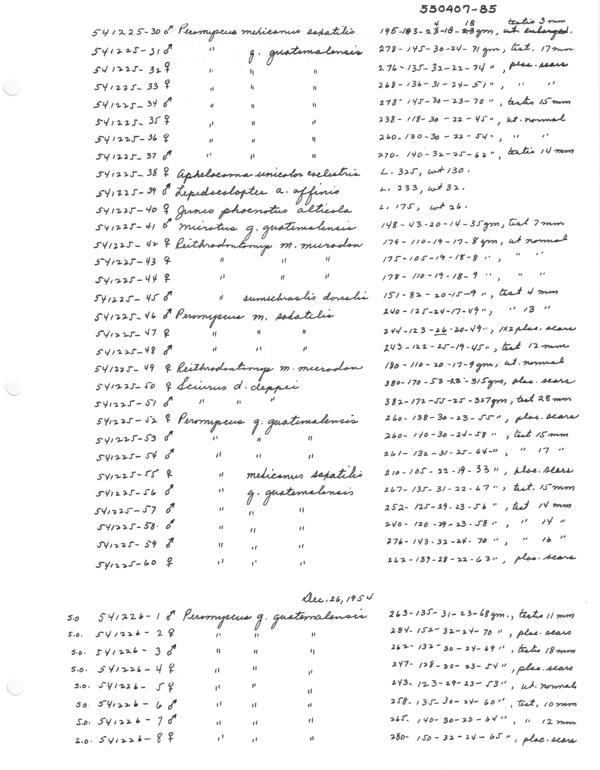 550407-85
541225-30♂ Peromyscus mexicanus saxatilis 195-103-23-18-23gm, ut enlarged. 4 18 testis 3mm
541225-31♂ " g. guatemalensis 278-145-30-24-71gm, test. 17mm
541225-32♀ " " " 276-135-32-22-74", plac. scars
541225-33♀ " " " 268-136-31-24-51", " "
541225-34♂ " " " 278-145-30-23-70", testis 15mm
541225-35♀ " " " 238-118-30-22-45", ut. normal
541225-36♀ " " " 260-130-30-22-54", " "
541225-37♂ " " " 270-140-32-25-62", testis 14mm
541225-38♀ Aphelocoma unicolor coelestris L. 325, wt 130.
541225-39♂ Lepidocolaptes a. affinis L. 233, wt 32.
541225-40♀ Junco phaenotus alticola L. 175, wt 26.
541225-41♂ Microtus g. guatemalensis 148-43-20-14-35gm, test 7mm
541225-42♀ Reithrodontomys m. microdon 174-110-19-17-8gm, ut normal
541225-43♀ " " " 175-105-19-18-8", " "
541225-44♀ " " " 178-110-19-18-9", " "
541225-45♂ " sumichrastis dorsalis 151-82-20-15-9", test 4mm
541225-46♂ Peromyscus m. saxatilis 240-125-24-17-49", " 13 "
541225-47♀ " " " 244-123-26-20-49", 1x2 plac. scars
541225-48♂ " " " 243-122-25-19-45", test 12mm
541225-49♀ Reithrodontomys m. microdon 180-110-20-17-9gm, ut. normal
541225-50♀ Sciurus d. deppei 380-170-53-23-315gm, plac. scars
541225-51♂ " " " 382-172-55-25-327gm, test 28mm
541225-52♀ Peromyscus g. guatemalensis 260-138-30-23-55", plac. scars
541225-53♂ " " " 260-140-30-24-58", test 15mm
541225-54♂ " " " 261-132-31-25-64", " 17 "
541225-55♀ " mexicanus saxatilis 210-105-22-19-33", plac. scars
541225-56♂ " g. guatemalensis 267-135-31-22-67", test. 15mm
541225-57♂ " " " 252-125-29-23-56", test 14mm
541225-58♂ " " " 240-120-29-23-58", " 14 "
541225-59♂ " " " 276-143-32-24-70", " 16 "
541225-60♀ " " " 262-139-28-22-63", plac. scars
Dec. 26, 1954
S.O. 541226-1♂ Peromyscus g. guatemalensis 263-135-31-23-68gm., testis 11mm
S.O. 541226-2♀ " " " 284-152-32-24-70", plac. scars
S.O. 541226-3♂ " " " 262-132-30-24-69", testis 18mm
S.O. 541226-4♀ " " " 247-128-30-23-54", plac. scars
S.O. 541226-5♀ " " " 243-123-29-23-53", ut. normal
S.O. 541226-6♂ " " " 258-135-30-24-60", test. 10mm
S.O. 541226-7♂ " " " 265-140-30-23-64", " 12mm
S.O. 541226-8♀ " " " 280-150-32-24-65", plac. scars